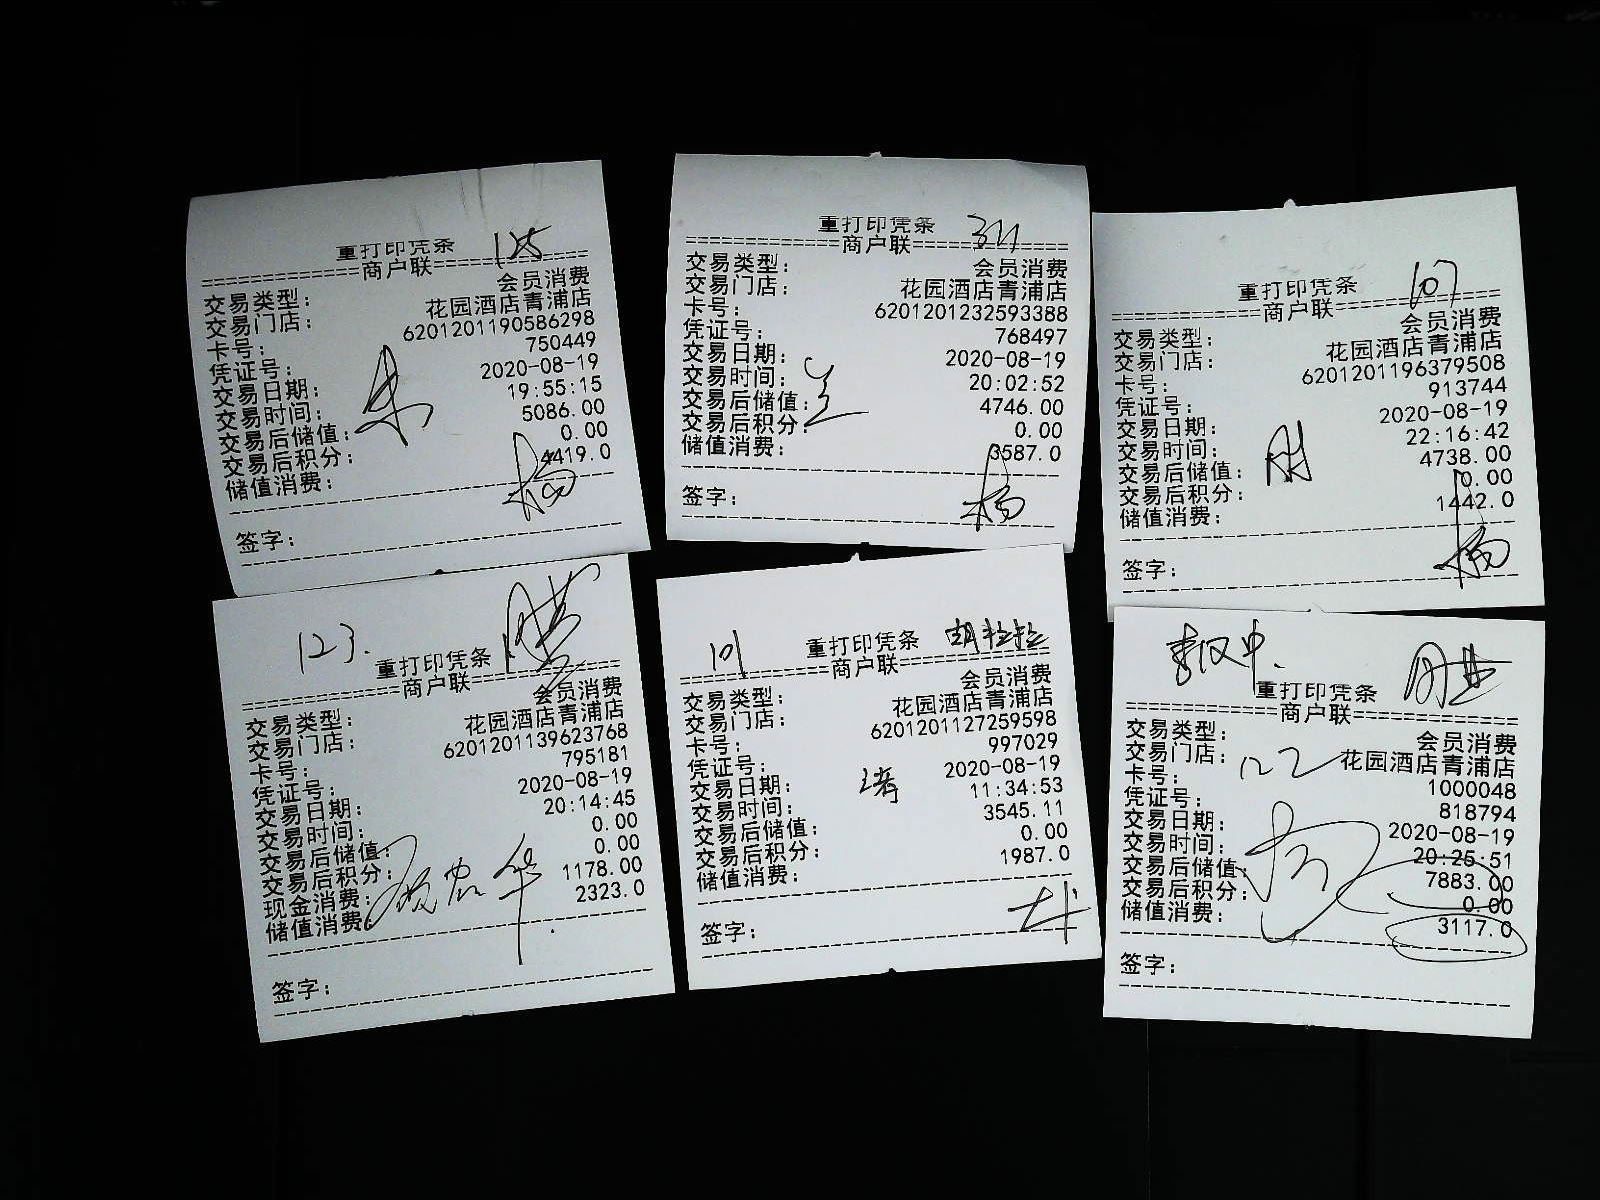 125
重打印凭条
================商户联================
交易类型: 会员消费
交易门店: 花园酒店青浦店
卡号: 6201201190586298
凭证号: 750449
交易日期: 2020-08-19
交易时间: 19:55:15
交易后储值: 5086.00
交易后积分: 0.00
储值消费: 4419.0
签字:
杨
311
重打印凭条
================商户联================
交易类型: 会员消费
交易门店: 花园酒店青浦店
卡号: 6201201232593388
凭证号: 768497
交易日期: 2020-08-19
交易时间: 20:02:52
交易后储值: 4746.00
交易后积分: 0.00
储值消费: 3587.0
签字:
杨
107
重打印凭条
================商户联================
交易类型: 会员消费
交易门店: 花园酒店青浦店
卡号: 6201201196379508
凭证号: 913744
交易日期: 2020-08-19
交易时间: 22:16:42
交易后储值: 4738.00
交易后积分: 0.00
储值消费: 1442.0
签字:
杨
123.
重打印凭条
================商户联================
交易类型: 会员消费
交易门店: 花园酒店青浦店
卡号: 6201201139623768
凭证号: 795181
交易日期: 2020-08-19
交易时间: 20:14:45
交易后储值: 0.00
交易后积分: 0.00
现金消费: 1178.00
储值消费: 2323.0
签字:
101
重打印凭条
================商户联================
交易类型: 会员消费
交易门店: 花园酒店青浦店
卡号: 6201201127259598
凭证号: 997029
交易日期: 2020-08-19
交易时间: 11:34:53
交易后储值: 3545.11
交易后积分: 0.00
储值消费: 1987.0
签字:
重打印凭条
================商户联================
交易类型: 会员消费
交易门店: 122 花园酒店青浦店
卡号: 1000048
凭证号: 818794
交易日期: 2020-08-19
交易时间: 20:25:51
交易后储值: 7883.00
交易后积分: 0.00
储值消费: 3117.0
签字: